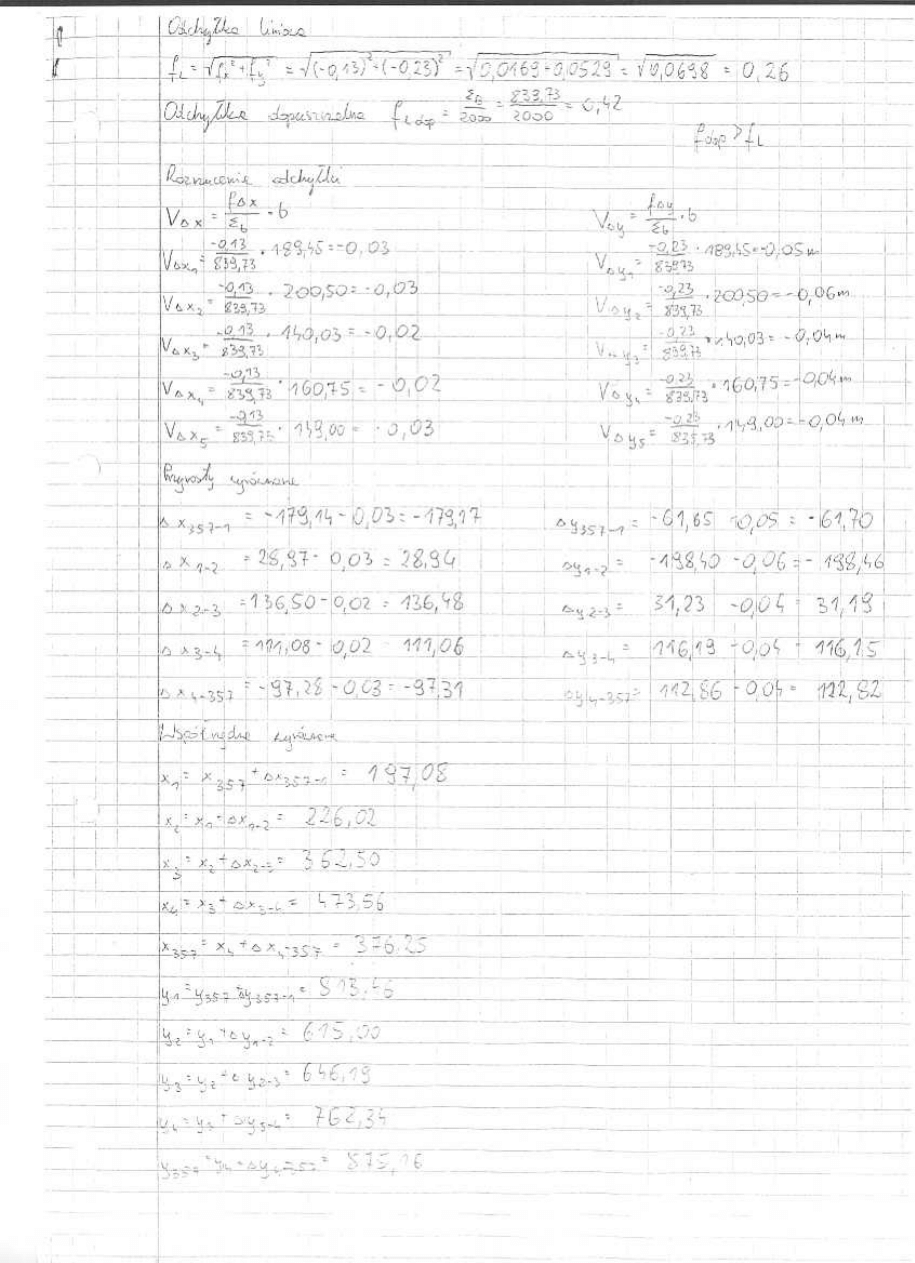 Odchyłka liniowa
f_L = √(f_x² + f_y²) = √((-0,13)² + (-0,23)²) = √(0,0169 + 0,0529) = √0,0698 = 0,26
Odchyłka dopuszczalna f_L dop = Σ_B/2000 = 839,73/2000 = 0,42
f_dop > f_L
Rozrzucenie odchyłki
V_Δx = f_Δx/Σ_b · b V_Δy = f_Δy/Σ_b · b
V_Δx₁ = -0,13/839,73 · 189,45 = -0,03 V_Δy₁ = -0,23/839,73 · 189,45 = -0,05 m
V_Δx₂ = -0,13/839,73 · 200,50 = -0,03 V_Δy₂ = -0,23/839,73 · 200,50 = -0,06 m
V_Δx₃ = -0,13/839,73 · 140,03 = -0,02 V_Δy₃ = -0,23/839,73 · 140,03 = -0,04 m
V_Δx₄ = -0,13/839,73 · 160,75 = -0,02 V_Δy₄ = -0,23/839,73 · 160,75 = -0,04 m
V_Δx₅ = -0,13/839,73 · 149,00 = -0,03 V_Δy₅ = -0,23/839,73 · 149,00 = -0,04 m
Przyrosty wyrównane
Δx_357-1 = -179,14 - 0,03 = -179,17 Δy_357-1 = -61,65 -0,05 = -61,70
Δx_1-2 = 28,97 - 0,03 = 28,94 Δy_1-2 = -198,40 -0,06 = -198,46
Δx_2-3 = 136,50 - 0,02 = 136,48 Δy_2-3 = 31,23 -0,04 = 31,19
Δx_3-4 = 111,08 - 0,02 = 111,06 Δy_3-4 = 116,19 -0,04 = 116,15
Δx_4-357 = -97,28 - 0,03 = -97,31 Δy_4-357 = 112,86 - 0,04 = 112,82
Współrzędne wyrównane
x₁ = x_357 + Δx_357-1 = 197,08
x₂ = x₁ + Δx_1-2 = 226,02
x₃ = x₂ + Δx_2-3 = 362,50
x₄ = x₃ + Δx_3-4 = 473,56
x_357 = x₄ + Δx_4-357 = 376,25
y₁ = y_357 + Δy_357-1 = 813,46
y₂ = y₁ + Δy_1-2 = 615,00
y₃ = y₂ + Δy_2-3 = 646,19
y₄ = y₃ + Δy_3-4 = 762,34
y_357 = y₄ + Δy_4-357 = 875,16